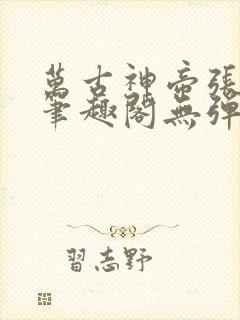 萬古神帝張
筆趣閣無彈
習志野